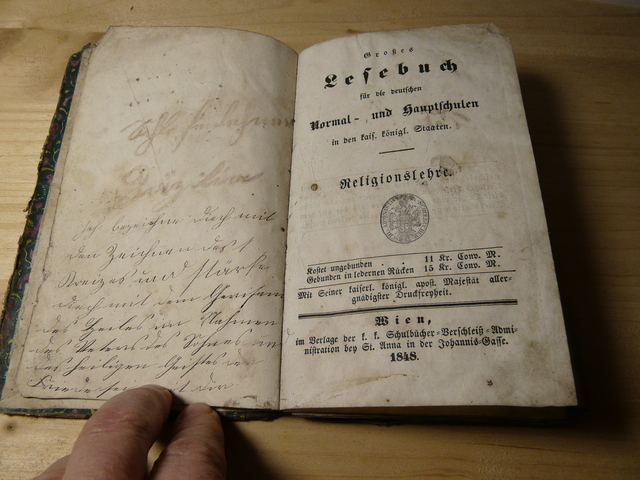 ich bezeichne dich mit
den Zeichen des
Kreizes und Stärke
dich mit dem
des Heiles im Nahmen
des Vaters des Sohnes un
des Heiligen Geistes
Großes
Lesebuch
für die deutschen
Normal- und Hauptschulen
in den kais. königl. Staaten.
Religionslehre.
Kostet ungebunden . . 11 Kr. Conv. M.
Gebunden in ledernen Rücken 15 Kr. Conv. M.
Mit Seiner kaiserl. königl. apost. Majestät aller-
gnädigster Druckfreyheit.
Wien,
im Verlage der k. k. Schulbücher-Verschleiß-Admi-
nistration bey St. Anna in der Johannis-Gasse.
1848.